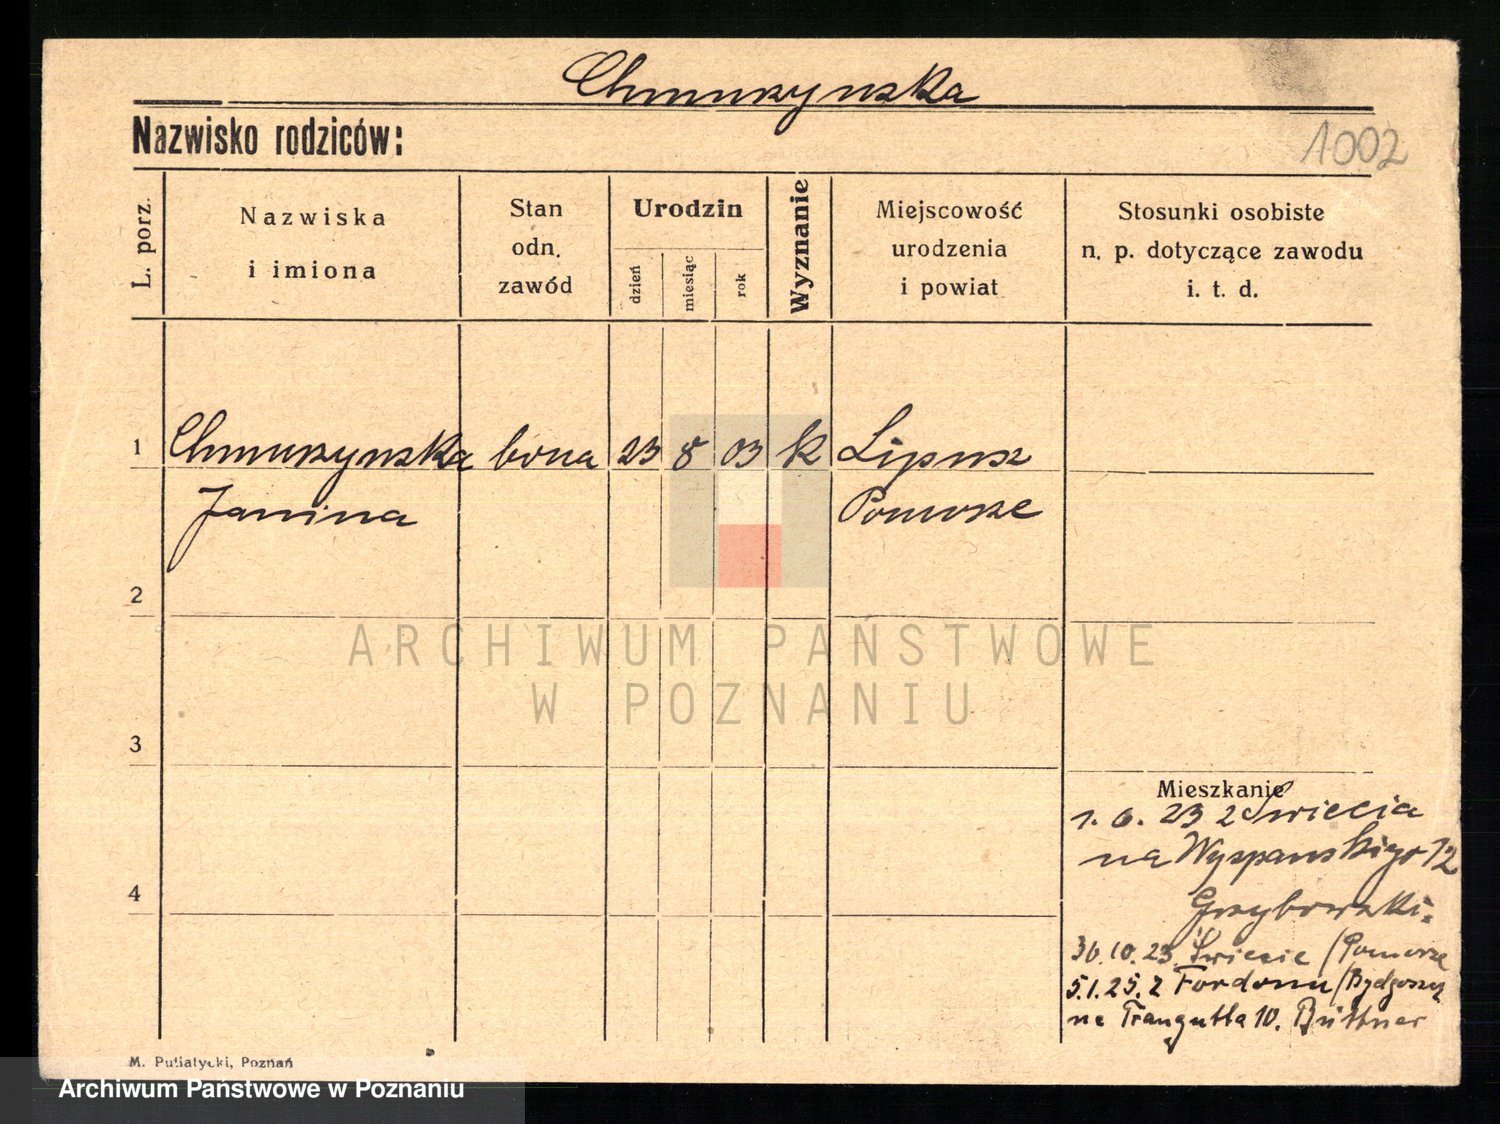 Chmurzynska
Nazwisko rodziców:
1002
L. porz.
Nazwiska
i imiona
Stan
odn.
zawód
Urodzin
dzień
miesiąc
rok
Wyznanie
Miejscowość
urodzenia
i powiat
Stosunki osobiste
n. p. dotyczące zawodu
i. t. d.
1 Chmurzynska bona 23 8 03 k Lipusz
Janina Pomorze
2
ARCHIWUM PAŃSTWOWE
W POZNANIU
3
Mieszkanie
1. 6. 23 z Swiecia
na Wyspanskigo 12
4
Grzybowski.
30.10.23 Swiecie (Pomorze
5.1.25. Z Fordonu (Bydgoszcz
na Traugutta 10. Büttner
M. Putiatycki, Poznań
Archiwum Państwowe w Poznaniu